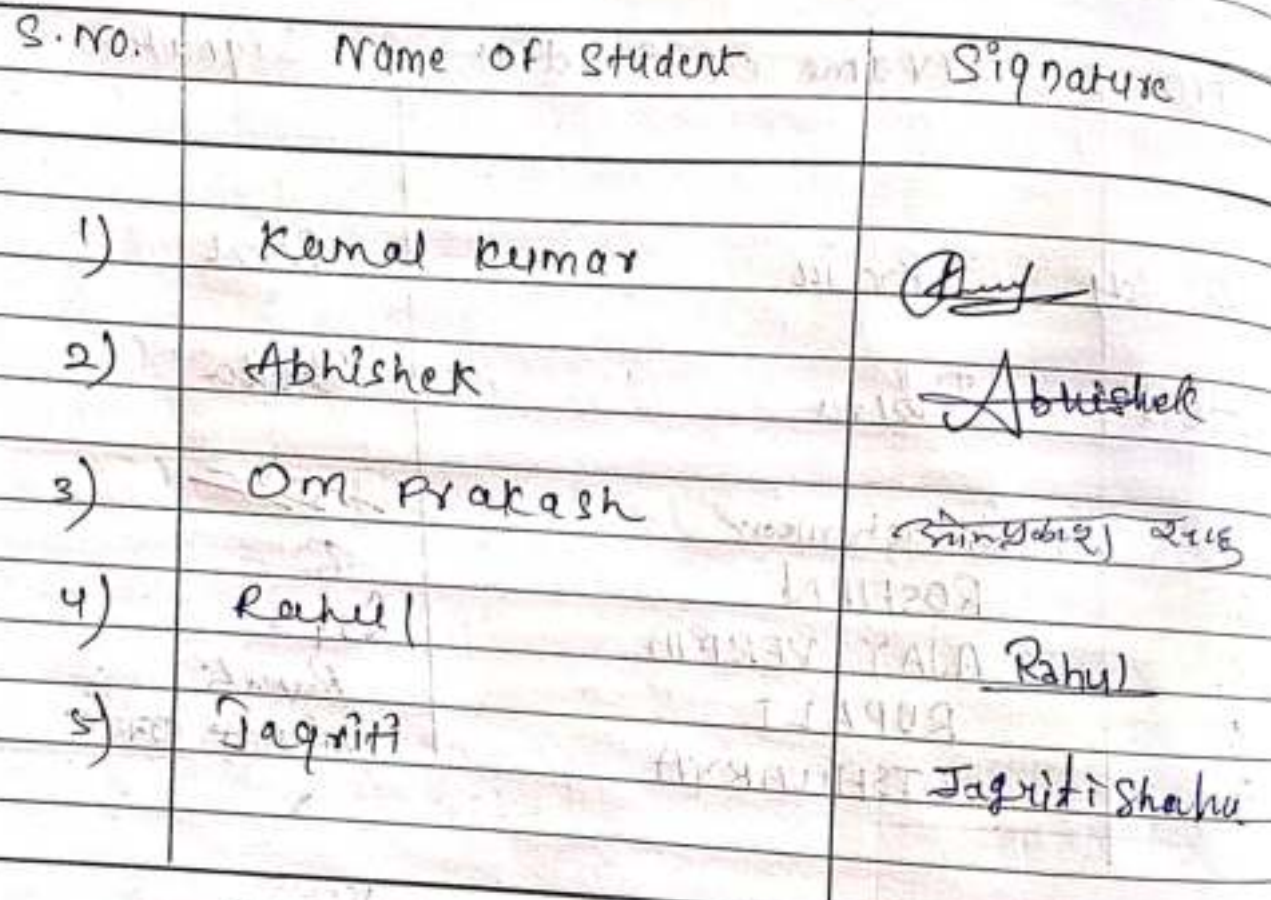 S.No. Name Of Student Signature
1) Kamal Kumar
2) Abhishek Abhishek
3) Om Prakash ओमप्रकाश साहू
4) Rahul Rahul
5) Jagriti Jagriti Shahu